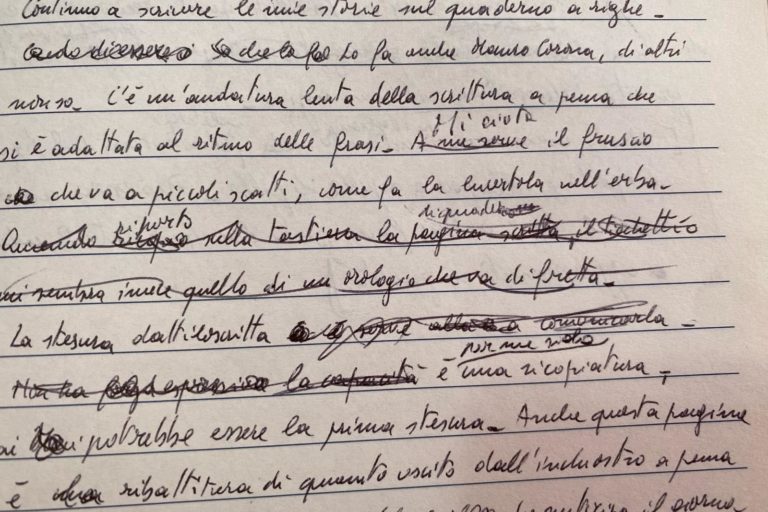 Continuo a scrivere le mie storie sul quaderno a righe.
Lo fa anche Mauro Corona, di altri
non so. C'è un'andatura lenta della scrittura a penna che
si è adattata al ritmo delle frasi. Mi aiuta
A me serve il fruscio
che va a piccoli scatti, come fa la lucertola nell'erba.
riporto di quaderno
Quando sulla tastiera la pagina scritta, il ticchettio
mi sembra invece quello di un orologio che va di fretta.
La stesura dattiloscritta comunicarla.
per me solo
la capacità è una ricopiatura,
potrebbe essere la prima stesura. Anche questa pagina
è ribattitura di quanto uscito dall'inchiostro a penna
il giorno